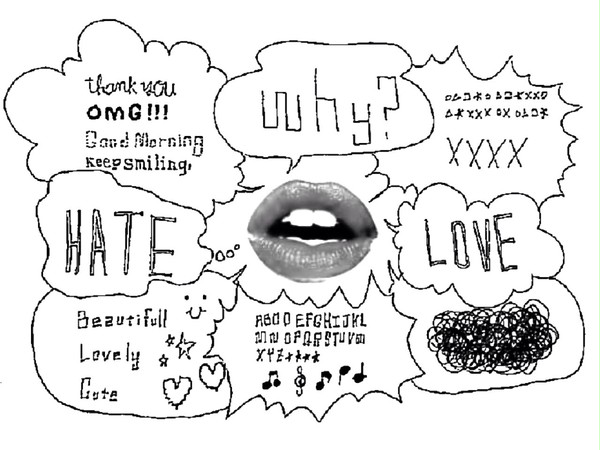 thank you
OMG!!!
Good Morning
keep smiling,
why?
XXXX
HATE
LOVE
Beautifull
Lovely
Cute
ABCDEFGHIJKL
MNOPQRSTUVW
XYZ****